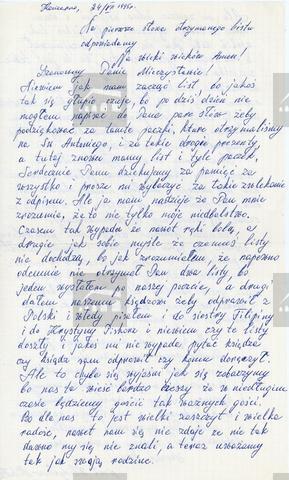 24/VII 1995r.
Na pierwsze słowa otrzymanego listu
odpowiadamy
Na wieki wieków Amen!
Szanowny Panie Mieczysławie!
Niewiem jak nam zacząć list bo jakoś
tak się głupio czuję, bo po dziś dzień nie
mogłem napisać do Pana parę słów żeby
podziękować za tamte paczki, które otrzymaliśmy
na Św Antoniego, i za takie drogie prezenty
a tutaj znowu mamy list i tyle paczek,
Serdecznie Panu dziękujemy za pamięć za
wszystko i proszę mi wybaczyć za takie zwlekanie
z odpisem. Ale ja mam nadzieję że Pan mnie
zrozumie, że to nie tylko moje niedbalstwo.
Czasem tak wypada że nawet ręki bolą, a
drugie jak sobie myślę że czemuś listy
nie dochodzą, bo jak zrozumiałem, że napewno
odemnie nie otrzymał Pan dwa listy, bo
jeden wysłałem po naszej poczcie, a drugi
dałem naszemu księdzowi żeby odprawił z
Polski i wtedy pisałem i do siostry Filipiny
i do Krystyny i niewiem czy te listy
doszły i jakoś mi nie wypada pytać księdza
czy ksiądz sam odprawił czy komu doręczył.
Ale to chyba się wyjaśni jak się zobaczymy
bo nas ta wieść bardzo cieszy że w niedługim
czasie będziemy gościć tak ważnych gości.
Bo dla nas to jest wielki zaszczyt i wielka
radość, nawet nam się nie zdaje że nie tak
dawno my się nie znali, a teraz uważamy
tak jak swoją rodzinę.